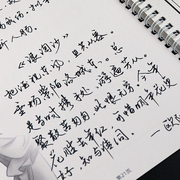 个人物。
《浪淘沙》
把酒祝东风 且共从容。
垂杨紫陌洛城东。总
是当时携手处 游遍芳丛。
聚散苦匆匆 此恨无穷 今年
花胜去年红 可惜明年花更
好 知与谁同
—欧